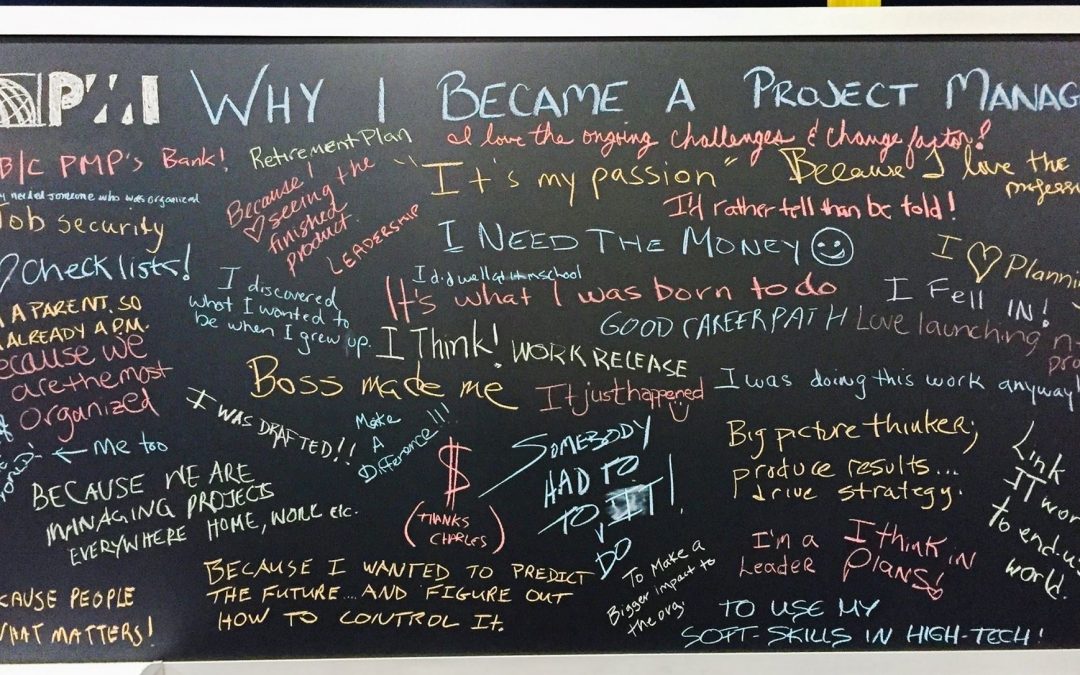 PMI WHY I BECAME A PROJECT MANAG
B/C PMP's BANK!
Retirement Plan
I love the ongoing challenges & change factor!
needed someone who was organized
Job security
Because I
♡ seeing the
finished
product.
LEADERSHIP
"It's my passion"
Because I love the
profession
I'd rather tell than be told!
I NEED THE MONEY ☺
I ♡ Plannin
♡ checklists!
I discovered
what I wanted to
be when I grew up.
I did well at it in school
It's what I was born to do
I FELL IN!
GOOD CAREER PATH
Love launching n
pro
A PARENT. SO
ALREADY A P.M.
ecause we
are the most
organized
← Me too
I Think!
WORK RELEASE
Boss made me
It just happened
I was doing this work anyway!
I WAS DRAFTED!!
Make
A
Difference!!!
$
(THANKS
CHARLES)
SOMEBODY
HAD TO
TO IT!
DO
Big picture thinker;
produce results...
drive strategy.
Link
IT wor
to end us
world.
BECAUSE WE ARE
MANAGING PROJECTS
EVERYWHERE HOME, WORK etc.
I'm a
Leader
I think in
Plans!
CAUSE PEOPLE
WHAT MATTERS!
BECAUSE I WANTED TO PREDICT
THE FUTURE... AND FIGURE OUT
HOW TO CONTROL IT.
To Make a
Bigger impact to
the org.
TO USE MY
SOFT-SKILLS IN HIGH-TECH!